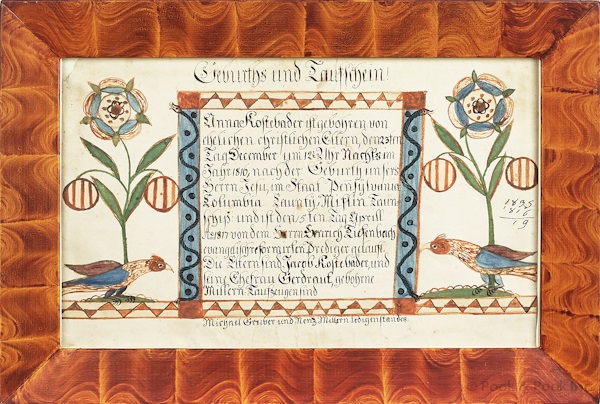 Geburths und Taufschein!
Anna Kostebader ist gebohren von
ehelichen christlichen Eltern, den 25ten
Tag December um 12 Uhr Nachts im
Jahr 1816, nach der Geburth unsers
Herrn Jesu, im Staat Pensylvania
Kolumbia Caunty Miflin Taun
schip und ist den 15ten Tag Aprill
Ao 1817 von dem Herrn Henrich Tiesenbach
evangelischreformirten Prediger getauft.
Die Eltern sind Jacob Kostebader, und
seine Ehefrau Gerdraut, gebohrne
Millern. Taufzeugen sind
Michael Gruber und Nenz Millern ledigenstandes.
1835
816
19
© Pook & Pook Inc